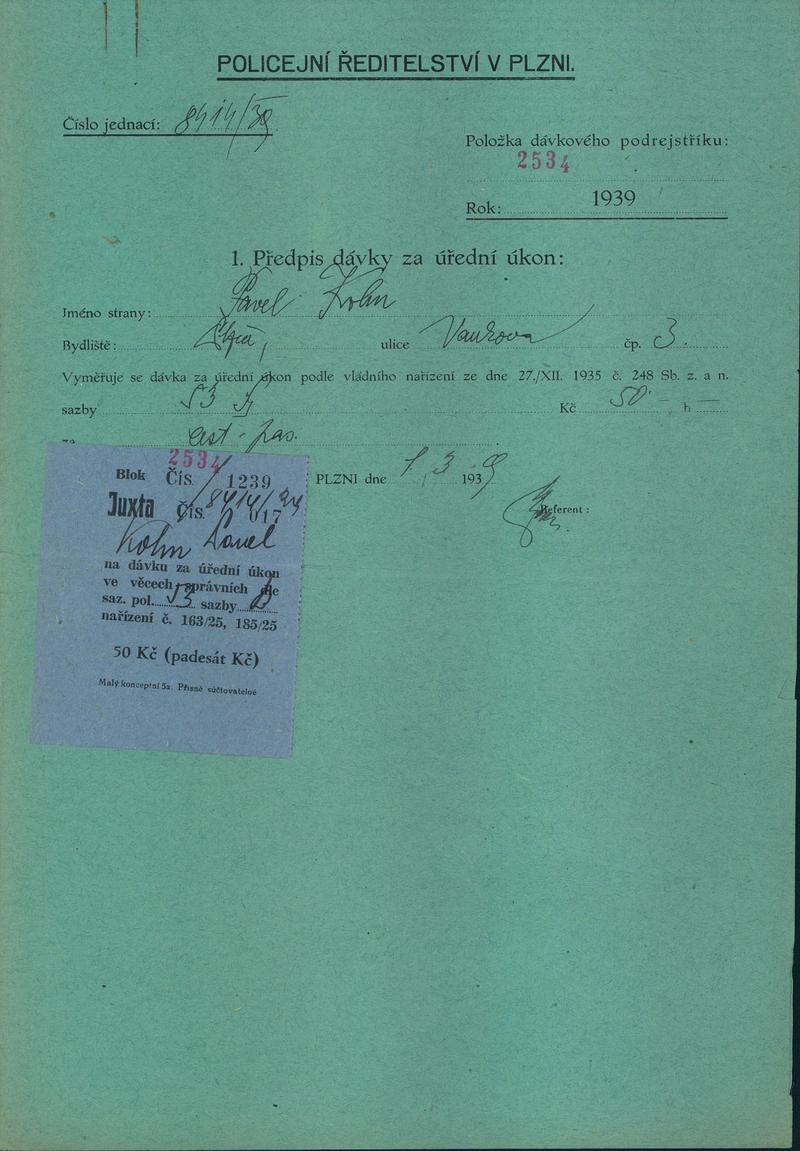 POLICEJNÍ ŘEDITELSTVÍ V PLZNI.
Číslo jednací: 8414/39
Položka dávkového podrejstříku:
2534
Rok: 1939
1. Předpis dávky za úřední úkon:
Jméno strany: Pavel Kohn
Bydliště: ulice čp. 3.
Vyměřuje se dávka za úřední úkon podle vládního nařízení ze dne 27./XII. 1935 č. 248 Sb. z. a n.
sazby 53 Kč 50 — h —
za cest. pas.
PLZNI dne 1. 3. 1939
Referent:
2534
Blok Čís. 1239
Juxta Čís. 017
Kohn Pavel
na dávku za úřední úkon
ve věcech správních dle
saz. pol. 53 sazby
nařízení č. 163/25, 185/25
50 Kč (padesát Kč)
Malý konceptní 5a. Přísně súčtovatelné